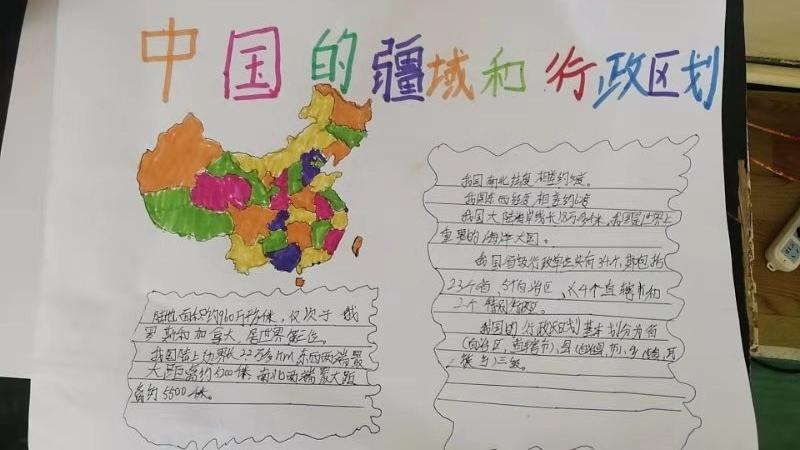 中国的疆域和行政区划
陆地面积约960万平方千米，仅次于俄
罗斯和加拿大，居世界第三位。
我国陆上边界长22万多km，东西两端最
大距离约5200千米，南北两端最大距
离约5500千米。
我国南北纬度相差约50度。
我国东西经度相差约60度
我国大陆海岸线长18万多千米，我国是世界上
重要的海洋大国。
我国省级行政单位共有34个，其包括
23个省，5个自治区，4个直辖市和
2个特别行政区。
我国的行政区划基本划分为省
(自治区、直辖市)、县(自治县、市)、乡(
镇)三级。